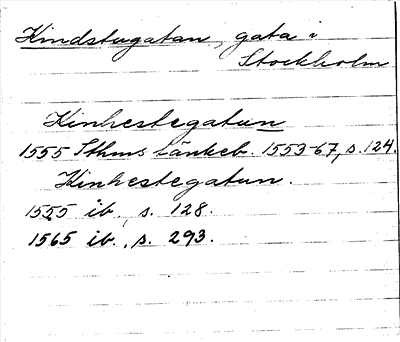 Kindstugatan, gata i
Stockholm
Kinhestegatun
1555 Sthms tänkeb. 1553-67, s. 124.
Kinhestegatun.
1555 ib., s. 128.
1565 ib., s. 293.